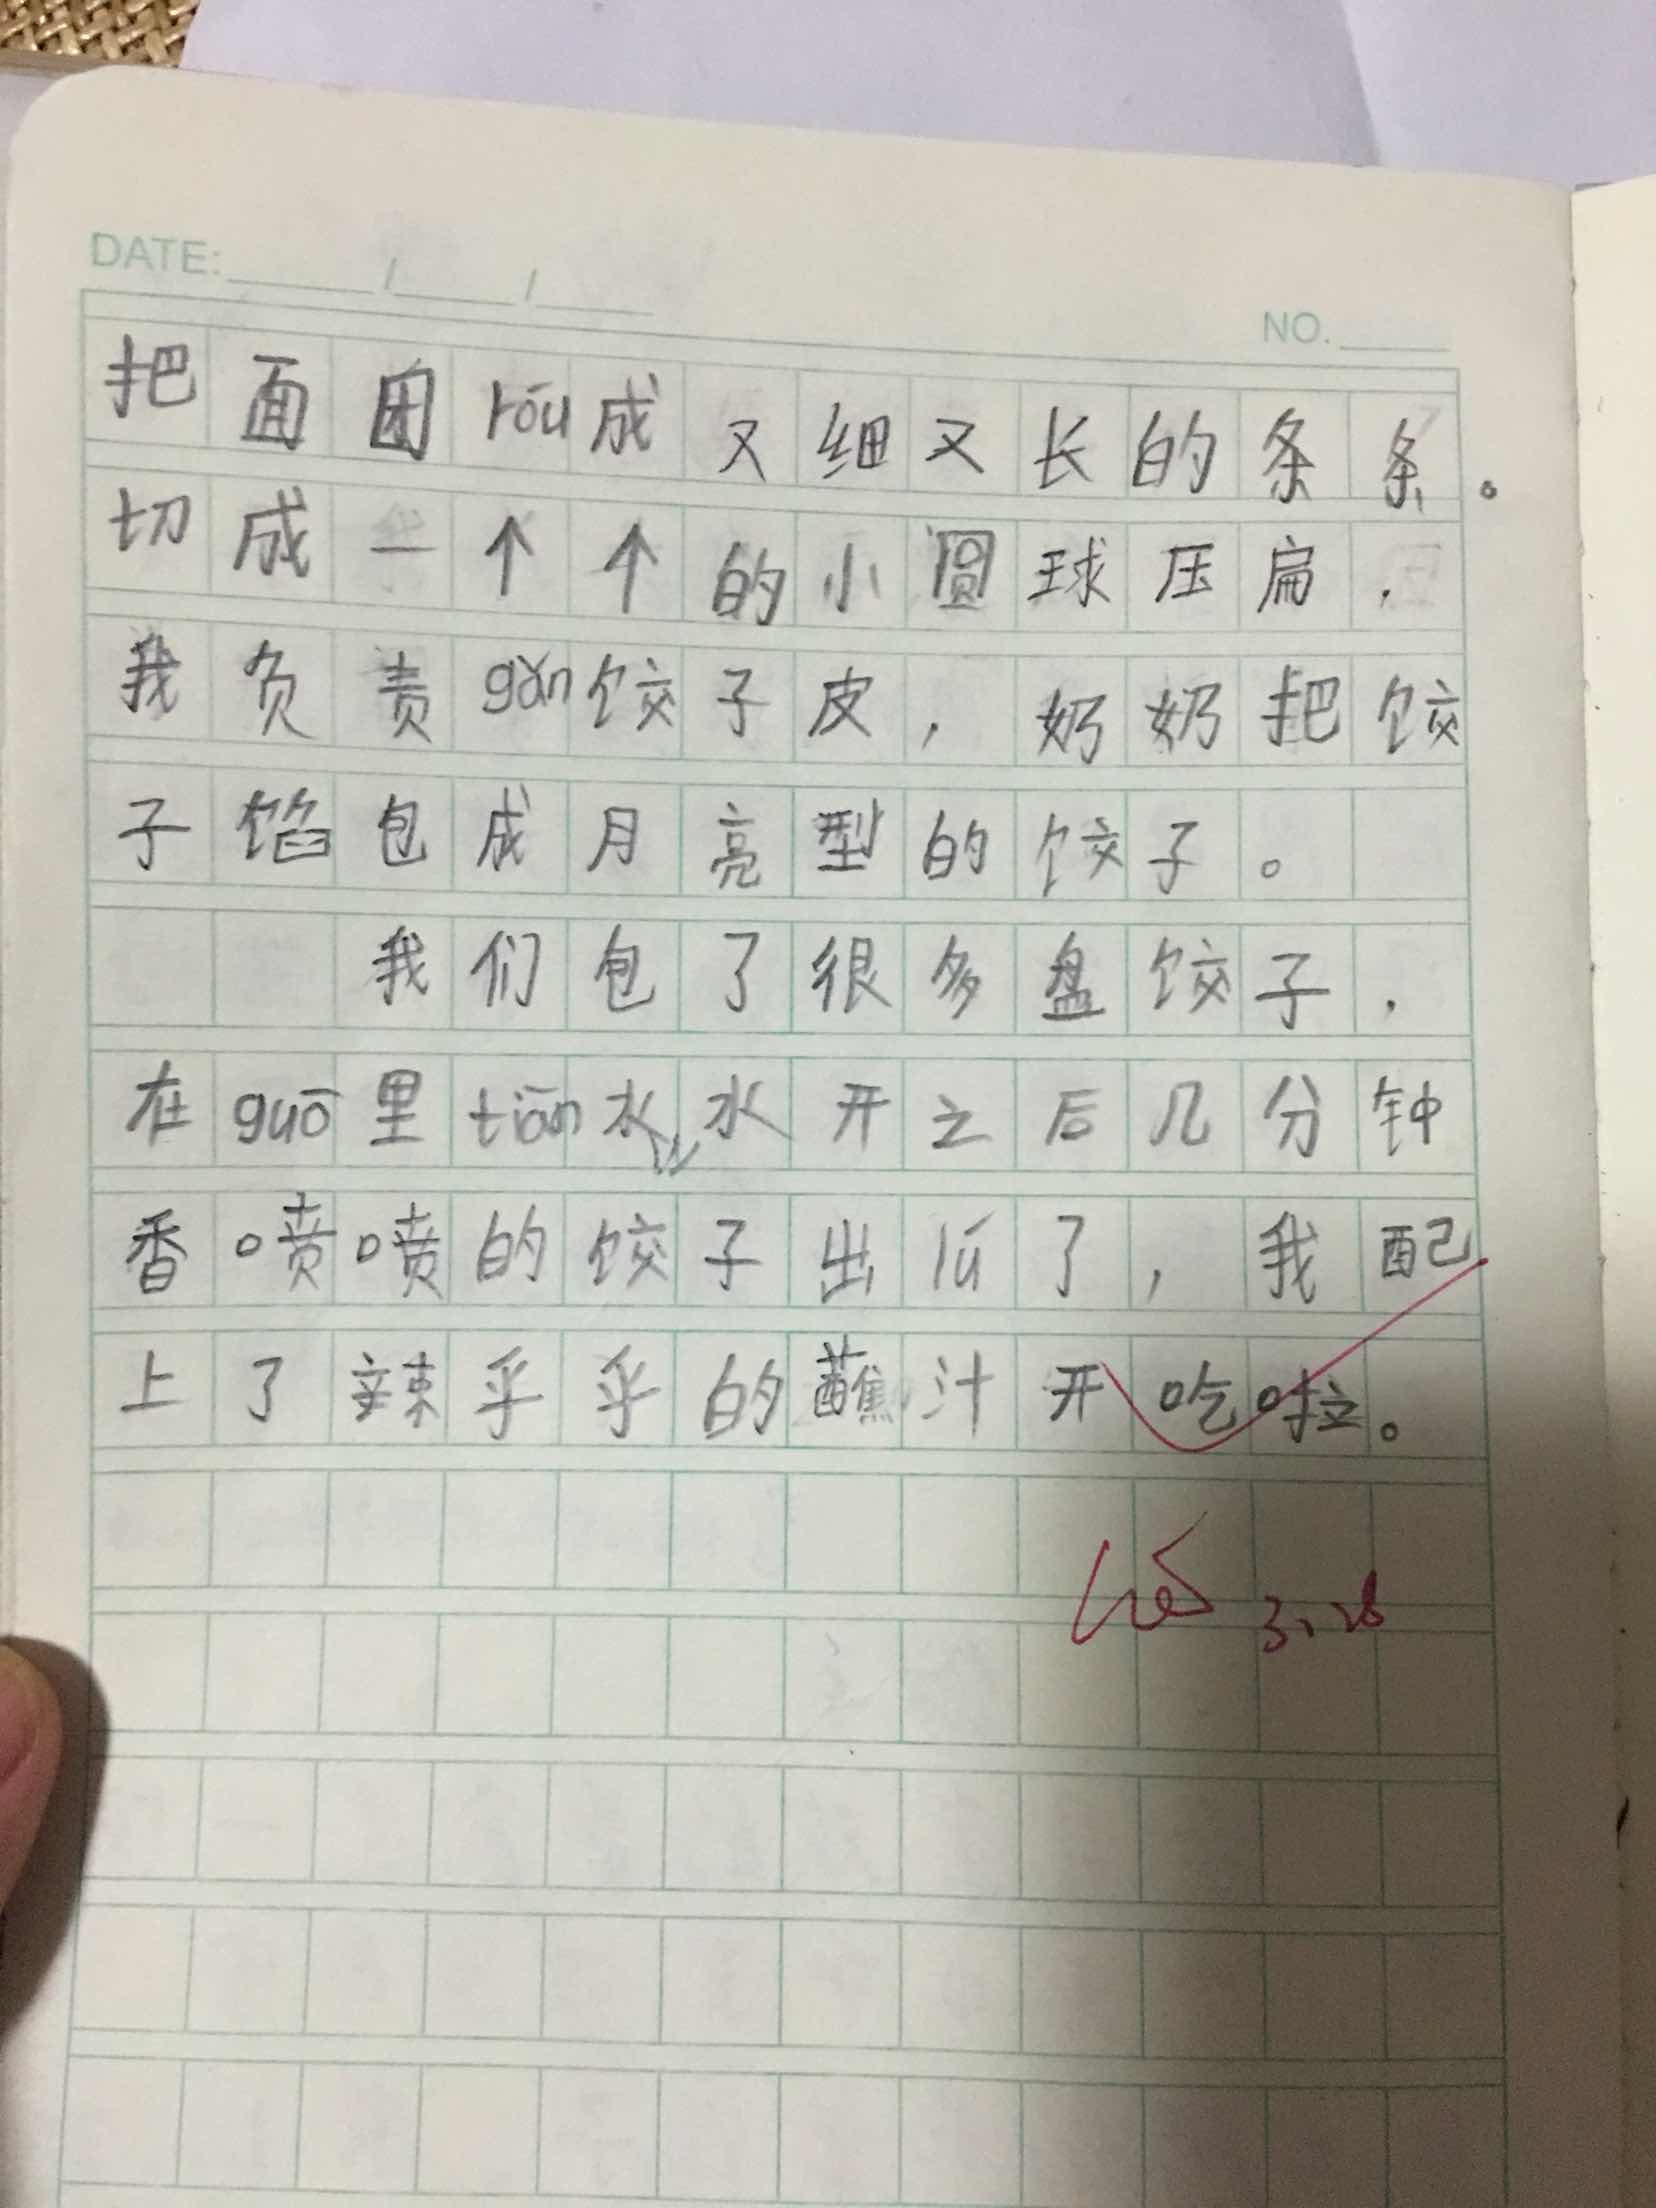 DATE: / /
NO.
把面团róu成又细又长的条条。
切成一个个的小圆球压扁，
我负责gǎn饺子皮，奶奶把饺
子馅包成月亮型的饺子。
我们包了很多盘饺子，
在guō里tiān水，水开之后几分钟
香喷喷的饺子出lú了，我配
上了辣乎乎的蘸汁开吃啦。
3.28